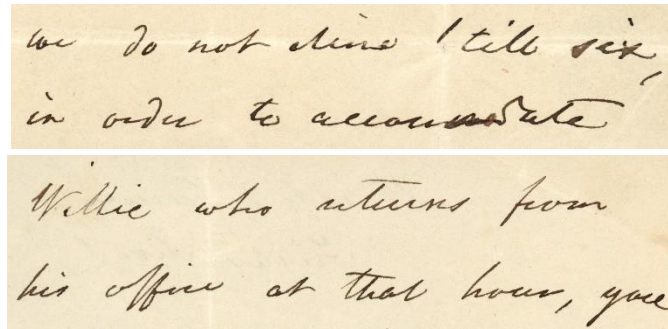 we do not dine 'till six,
in order to accommodate
Willie who returns from
his office at that hour, you